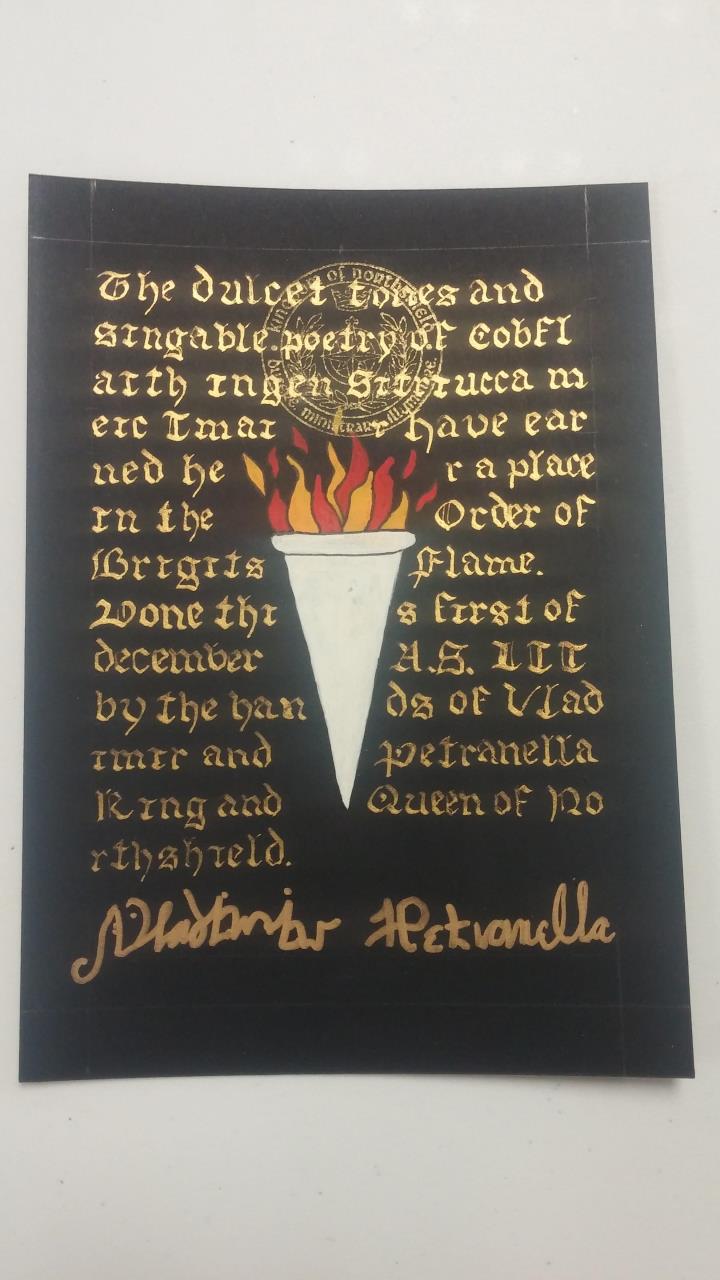 The dulcet tones and
singable poetry of Cobfl
aith ingen Sitriucca m
eic Imai r have ear
ned he r a place
in the Order of
Brigits Flame.
Done thi s first of
december A.S. LII
by the han ds of Vlad
imir and Petranella
King and Queen of No
rthshield.
Vladimir Petranella